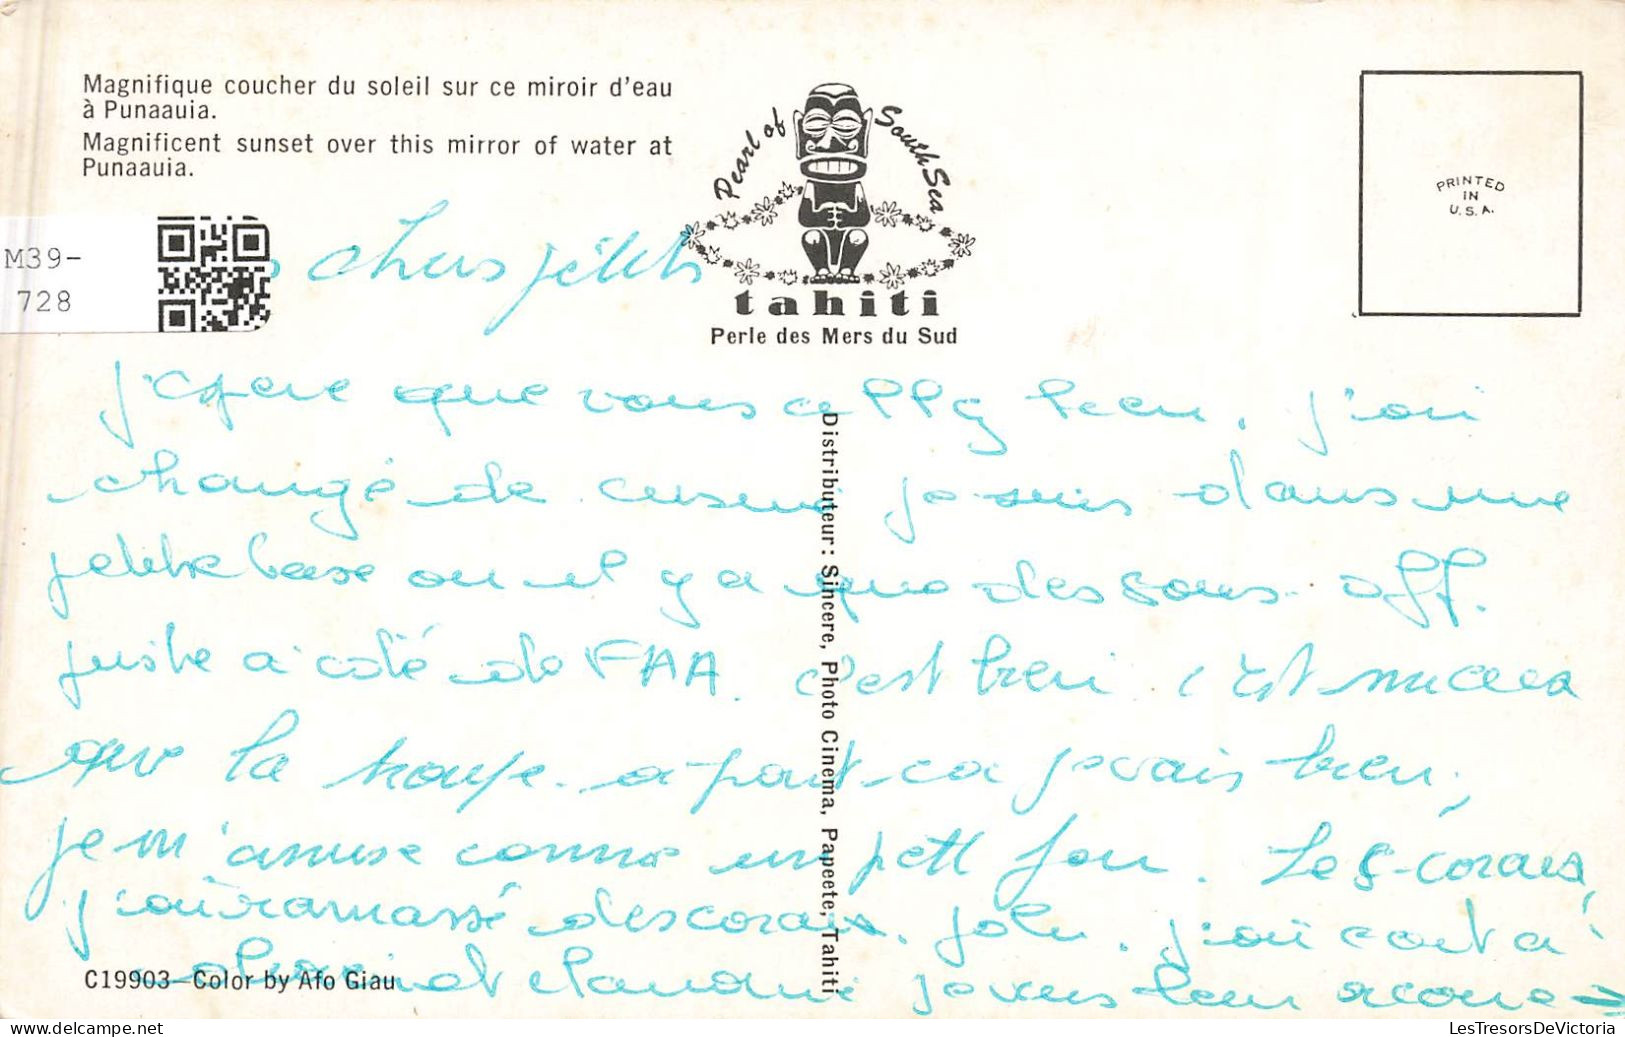 Magnifique coucher du soleil sur ce miroir d'eau
à Punaauia.
Magnificent sunset over this mirror of water at
Punaauia.
Pearl of South Sea
tahiti
Perle des Mers du Sud
PRINTED
IN
U.S.A.
M39-
728
chers petits
j'espere que vous bien. j'ai
changé de je suis dans une
petite base ou il y a que des sous. off.
juste a coté de FAA. c'est bien. c'est mieux
que la troupe. a part ca je vais bien,
je m'amuse comme un petit fou. Les coraux,
j'ai ramassé des coraux. joli. j'ai
et je vous
Distributeur: Sincere, Photo Cinema, Papeete, Tahiti
C19903-Color by Afo Giau
LesTresorsDeVictoria.com